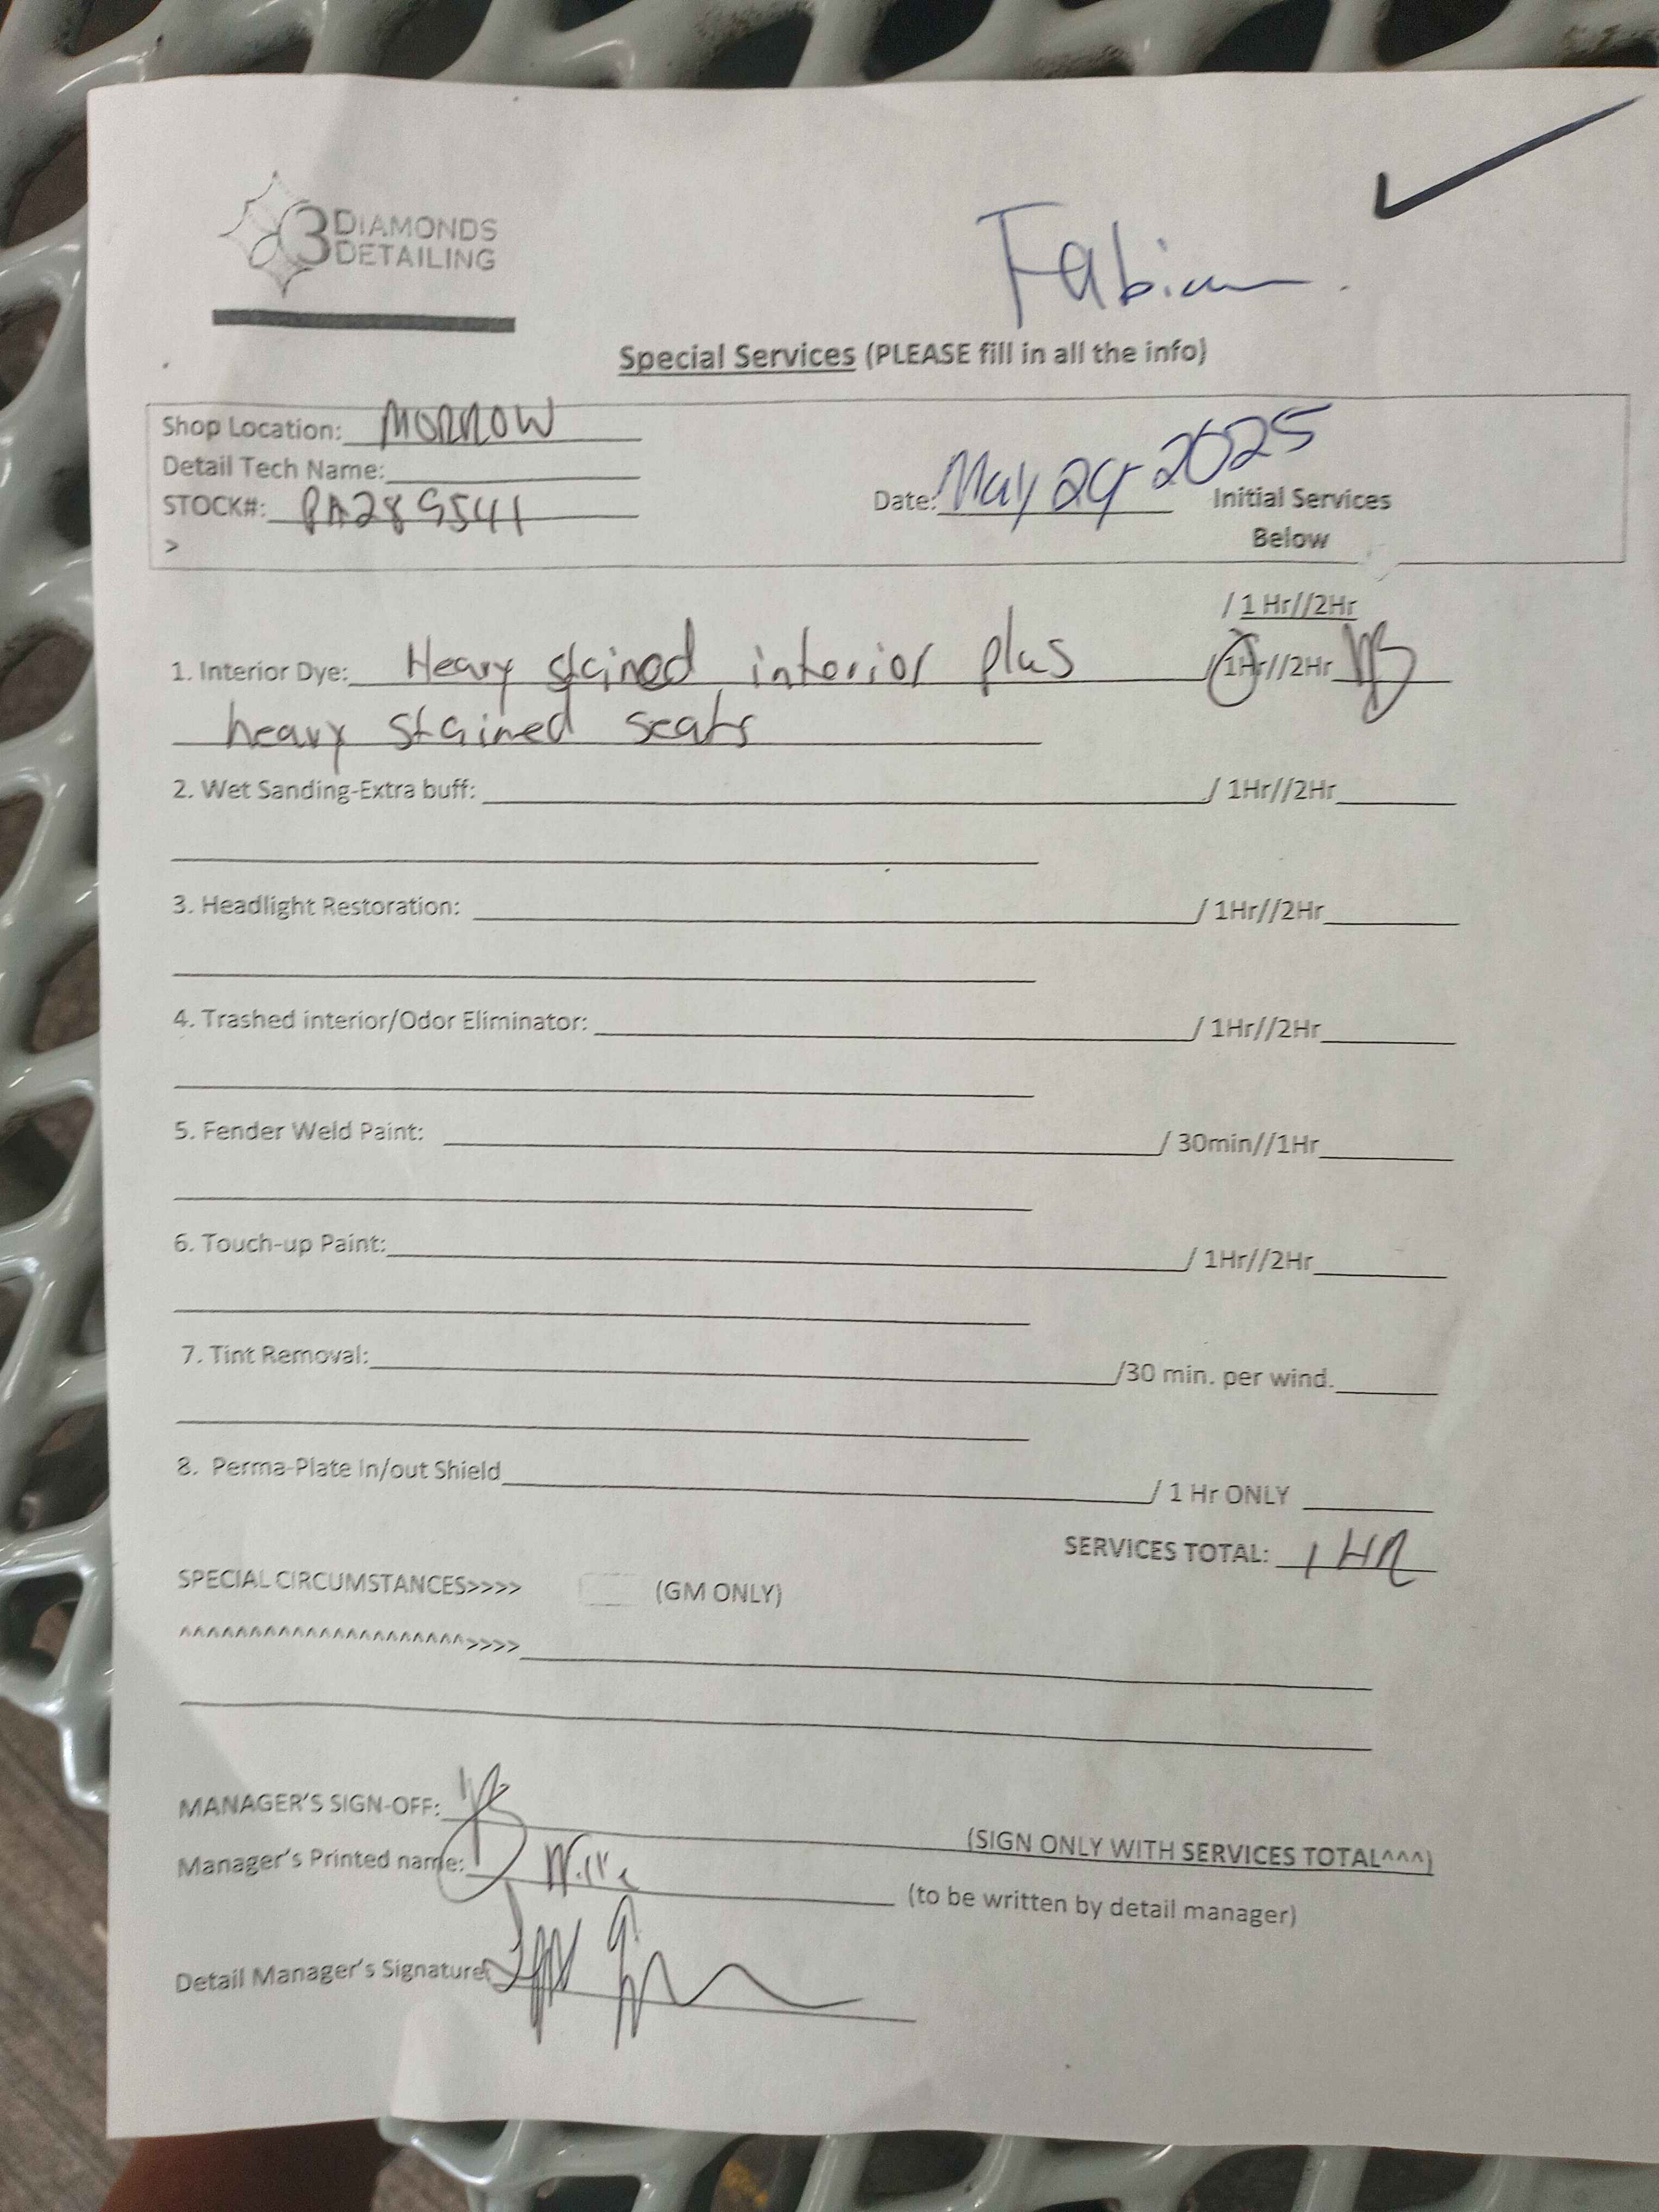 3 DIAMONDS
DETAILING
Fabian
Special Services (PLEASE fill in all the info)
Shop Location: MORROW
Detail Tech Name:
STOCK#: PA289541
>
Date: May 29 2025
Initial Services
Below
/ 1 Hr//2Hr
1. Interior Dye: Heavy stained interior plus / 1Hr//2Hr
heavy stained seats
2. Wet Sanding-Extra buff: / 1Hr//2Hr
3. Headlight Restoration: / 1Hr//2Hr
4. Trashed interior/Odor Eliminator: / 1Hr//2Hr
5. Fender Weld Paint: / 30min//1Hr
6. Touch-up Paint: / 1Hr//2Hr
7. Tint Removal: /30 min. per wind.
8. Perma-Plate In/out Shield / 1 Hr ONLY
SERVICES TOTAL: 1 HR
SPECIAL CIRCUMSTANCES>>>> (GM ONLY)
^^^^^^^^^^^^^^^^^^^^^^^>>>>
MANAGER'S SIGN-OFF:
(SIGN ONLY WITH SERVICES TOTAL^^^)
Manager's Printed name: Willie
(to be written by detail manager)
Detail Manager's Signature: